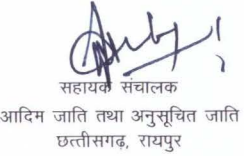 सहायक संचालक
आदिम जाति तथा अनुसूचित जाति
छत्तीसगढ़, रायपुर